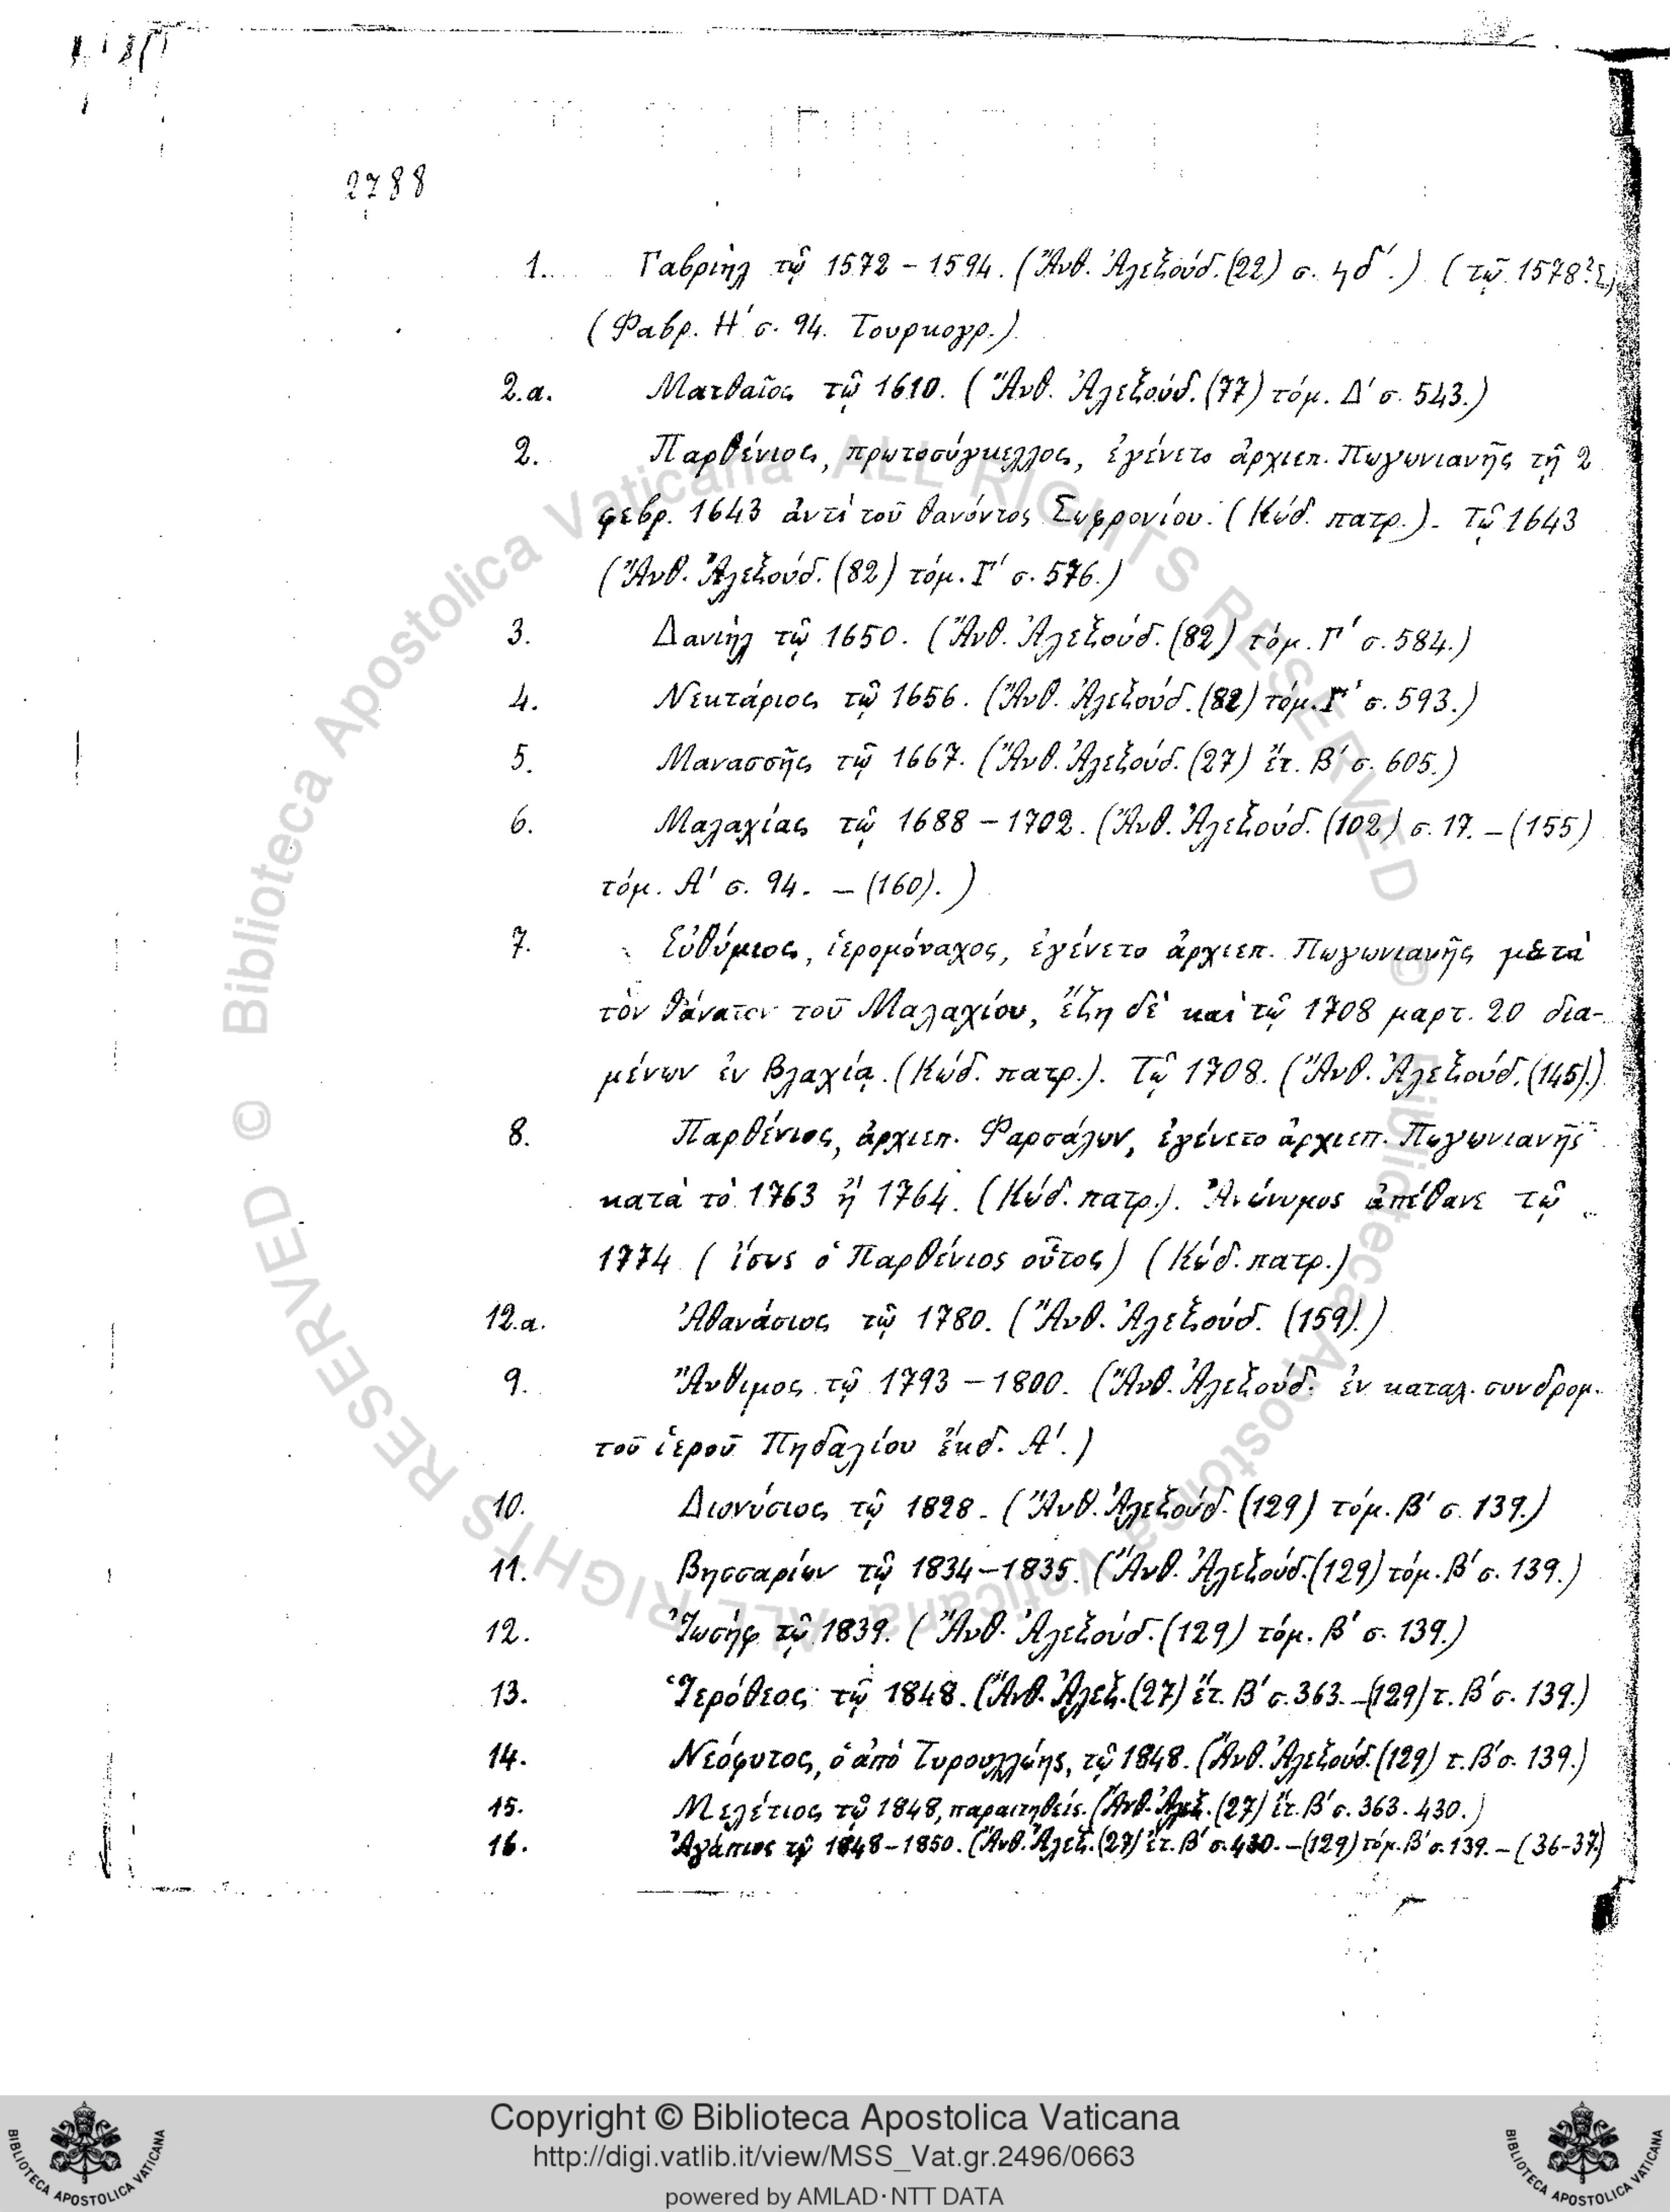 2788
1. Γαβριὴλ τῷ 1572 – 1594. (Ἄνθ. Ἀλεξούδ. (22) σ. ϟδ΄.) (τῷ 1578
(Φαβρ. Η΄ σ. 94. Τουρκογρ.)
2.α. Ματθαῖος τῷ 1610. (Ἄνθ. Ἀλεξούδ. (77) τόμ. Δ΄ σ. 543.)
2. Παρθένιος, πρωτοσύγκελλος, ἐγένετο ἀρχιεπ. Πωγωνιανῆς τῇ 2
φεβρ. 1643 ἀντὶ τοῦ θανόντος Σωφρονίου. (Κώδ. πατρ.). Τῷ 1643
(Ἄνθ. Ἀλεξούδ. (82) τόμ. Γ΄ σ. 576.)
3. Δανιὴλ τῷ 1650. (Ἄνθ. Ἀλεξούδ. (82) τόμ. Γ΄ σ. 584.)
4. Νεκτάριος τῷ 1656. (Ἄνθ. Ἀλεξούδ. (82) τόμ. Γ΄ σ. 593.)
5. Μανασσῆς τῷ 1667. (Ἄνθ. Ἀλεξούδ. (27) ἔτ. Β΄ σ. 605.)
6. Μαλαχίας τῷ 1688 – 1702. (Ἄνθ. Ἀλεξούδ. (102) σ. 17. – (155)
τόμ. Α΄ σ. 94. – (160).)
7. Εὐθύμιος, ἱερομόναχος, ἐγένετο ἀρχιεπ. Πωγωνιανῆς μετὰ
τὸν θάνατον τοῦ Μαλαχίου, ἔζη δὲ καὶ τῷ 1708 μαρτ. 20 δια-
μένων ἐν Βλαχίᾳ. (Κώδ. πατρ.). Τῷ 1708. (Ἄνθ. Ἀλεξούδ. (145).)
8. Παρθένιος, ἀρχιεπ. Φαρσάλων, ἐγένετο ἀρχιεπ. Πωγωνιανῆς
κατὰ τὸ 1763 ἢ 1764. (Κώδ. πατρ.). Ἀνώνυμος ἀπέθανε τῷ
1774 (ἴσως ὁ Παρθένιος οὗτος) (Κώδ. πατρ.)
12.α. Ἀθανάσιος τῷ 1780. (Ἄνθ. Ἀλεξούδ. (159).)
9. Ἄνθιμος τῷ 1793 – 1800. (Ἄνθ. Ἀλεξούδ. ἐν καταλ. συνδρομ.
τοῦ ἱεροῦ Πηδαλίου ἔκδ. Α΄.)
10. Διονύσιος τῷ 1828. (Ἄνθ. Ἀλεξούδ. (129) τόμ. Β΄ σ. 139.)
11. Βησσαρίων τῷ 1834–1835. (Ἄνθ. Ἀλεξούδ. (129) τόμ. Β΄ σ. 139.)
12. Ἰωσὴφ τῷ 1839. (Ἄνθ. Ἀλεξούδ. (129) τόμ. Β΄ σ. 139.)
13. Ἱερόθεος τῷ 1848. (Ἄνθ. Ἀλεξ. (27) ἔτ. Β΄ σ. 363. – (129) τ. Β΄ σ. 139.)
14. Νεόφυτος, ὁ ἀπὸ Τυρουλλώης, τῷ 1848. (Ἄνθ. Ἀλεξούδ. (129) τ. Β΄ σ. 139.)
15. Μελέτιος τῷ 1848, παραιτηθείς. (Ἄνθ. Ἀλεξ. (27) ἔτ. Β΄ σ. 363. 430.)
16. Ἀγάπιος τῷ 1848–1850. (Ἄνθ. Ἀλεξ. (27) ἔτ. Β΄ σ. 430. – (129) τόμ. Β΄ σ. 139. – (36–37)
© Biblioteca Apostolica Vaticana ALL RIGHTS RESERVED
© Biblioteca Apostolica Vaticana ALL RIGHTS RESERVED
BIBLIOTECA APOSTOLICA VATICANA
Copyright © Biblioteca Apostolica Vaticana
http://digi.vatlib.it/view/MSS_Vat.gr.2496/0663
powered by AMLAD·NTT DATA
BIBLIOTECA APOSTOLICA VATICANA